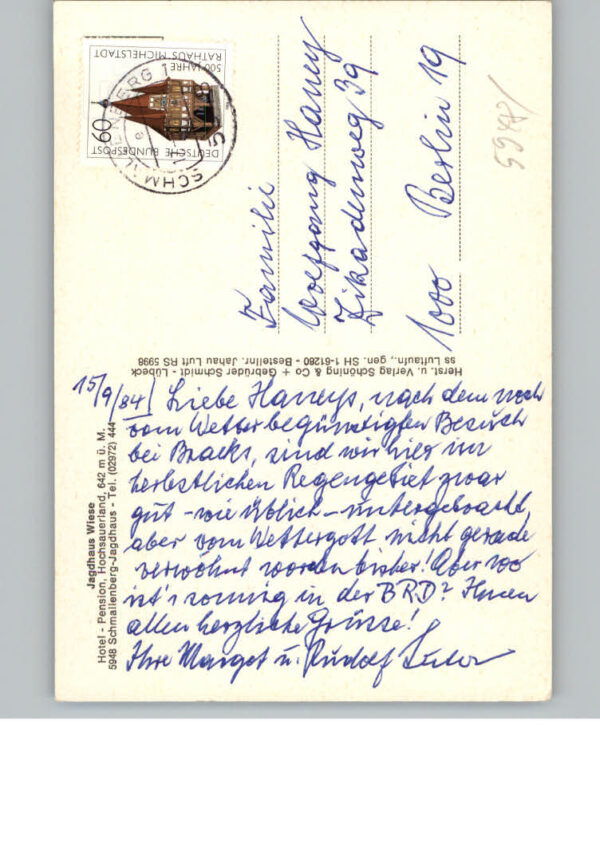 500 JAHRE
RATHAUS MICHELSTADT
60
DEUTSCHE BUNDESPOST
SCHMALLENBERG 1
Familie
Wolfgang Haney
Zikadenweg 39
1000 Berlin 19
5948/
Herst. u. Verlag Schöning & Co + Gebrüder Schmidt - Lübeck
ss Luftaufn., gen. SH 1-61280 - Bestellnr. Jahau Luft RS 5998
Jagdhaus Wiese
Hotel - Pension, Hochsauerland, 642 m ü. M.
5948 Schmallenberg-Jagdhaus - Tel. (02972) 444
15/9/84 Liebe Haneys, nach dem noch
vom Wetter begünstigten Besuch
bei Bracks, sind wir hier im
herbstlichen Regengebiet zwar
gut - wie üblich - untergebracht,
aber vom Wettergott nicht gerade
verwöhnt worden bisher! Aber wo
ist's sonnig in der BRD? Ihnen
allen herzliche Grüsse!
Ihre Marget u. Rudolf